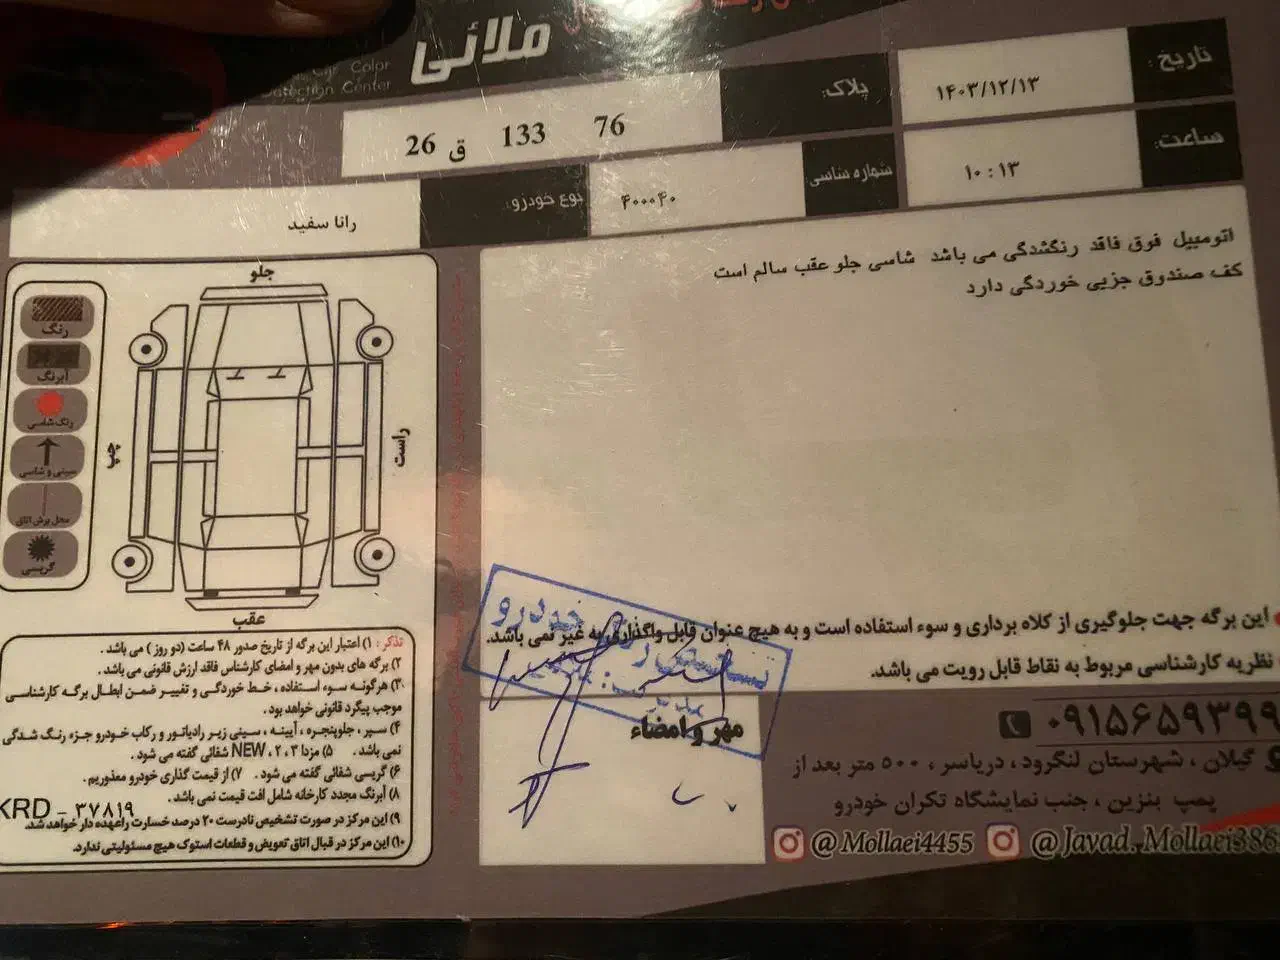 ملائی
Car Color
Detection Center
تاریخ:
۱۴۰۳/۱۲/۱۳
پلاک:
76 133 ق 26
ساعت:
۱۰:۱۳
شماره شاسی
۴۰۰۰۴۰
نوع خودرو:
رانا سفید
اتومبیل فوق فاقد رنگشدگی می باشد شاسی جلو عقب سالم است
کف صندوق جزیی خوردگی دارد
جلو
رنگ
آبرنگ
رنگ شاسی
سینی و شاسی
محل برش اتاق
گریسی
چپ
راست
عقب
این برگه جهت جلوگیری از کلاه برداری و سوء استفاده است و به هیچ عنوان قابل واگذاری به غیر نمی باشد.
نظریه کارشناسی مربوط به نقاط قابل رویت می باشد.
مهر و امضاء
تذکر: ۱) اعتبار این برگه از تاریخ صدور ۴۸ ساعت (دو روز) می باشد.
۲) برگه های بدون مهر و امضای کارشناس فاقد ارزش قانونی می باشد.
۳) هرگونه سوء استفاده، خط خوردگی و تغییر ضمن ابطال برگه کارشناسی
موجب پیگرد قانونی خواهد بود.
۴) سپر، جلوپنجره، آیینه، سینی زیر رادیاتور و رکاب خودرو جزء رنگ شدگی
نمی باشد. ۵) مزدا ۳، ۲، NEW شفائی گفته می شود.
۶) گریسی شفائی گفته می شود. ۷) از قیمت گذاری خودرو معذوریم.
۸) آبرنگ مجدد کارخانه شامل افت قیمت نمی باشد.
KRD - ۳۷۸۱۹
۹) این مرکز در صورت تشخیص نادرست ۲۰ درصد خسارت را عهده دار خواهد شد.
۱۰) این مرکز در قبال اتاق تعویض و قطعات استوک هیچ مسئولیتی ندارد.
۰۹۱۵۶۵۹۳۹۹
گیلان، شهرستان لنگرود، دریاسر، ۵۰۰ متر بعد از
پمپ بنزین، جنب نمایشگاه تکران خودرو
@Mollaei4455 @Javad.Mollaei386